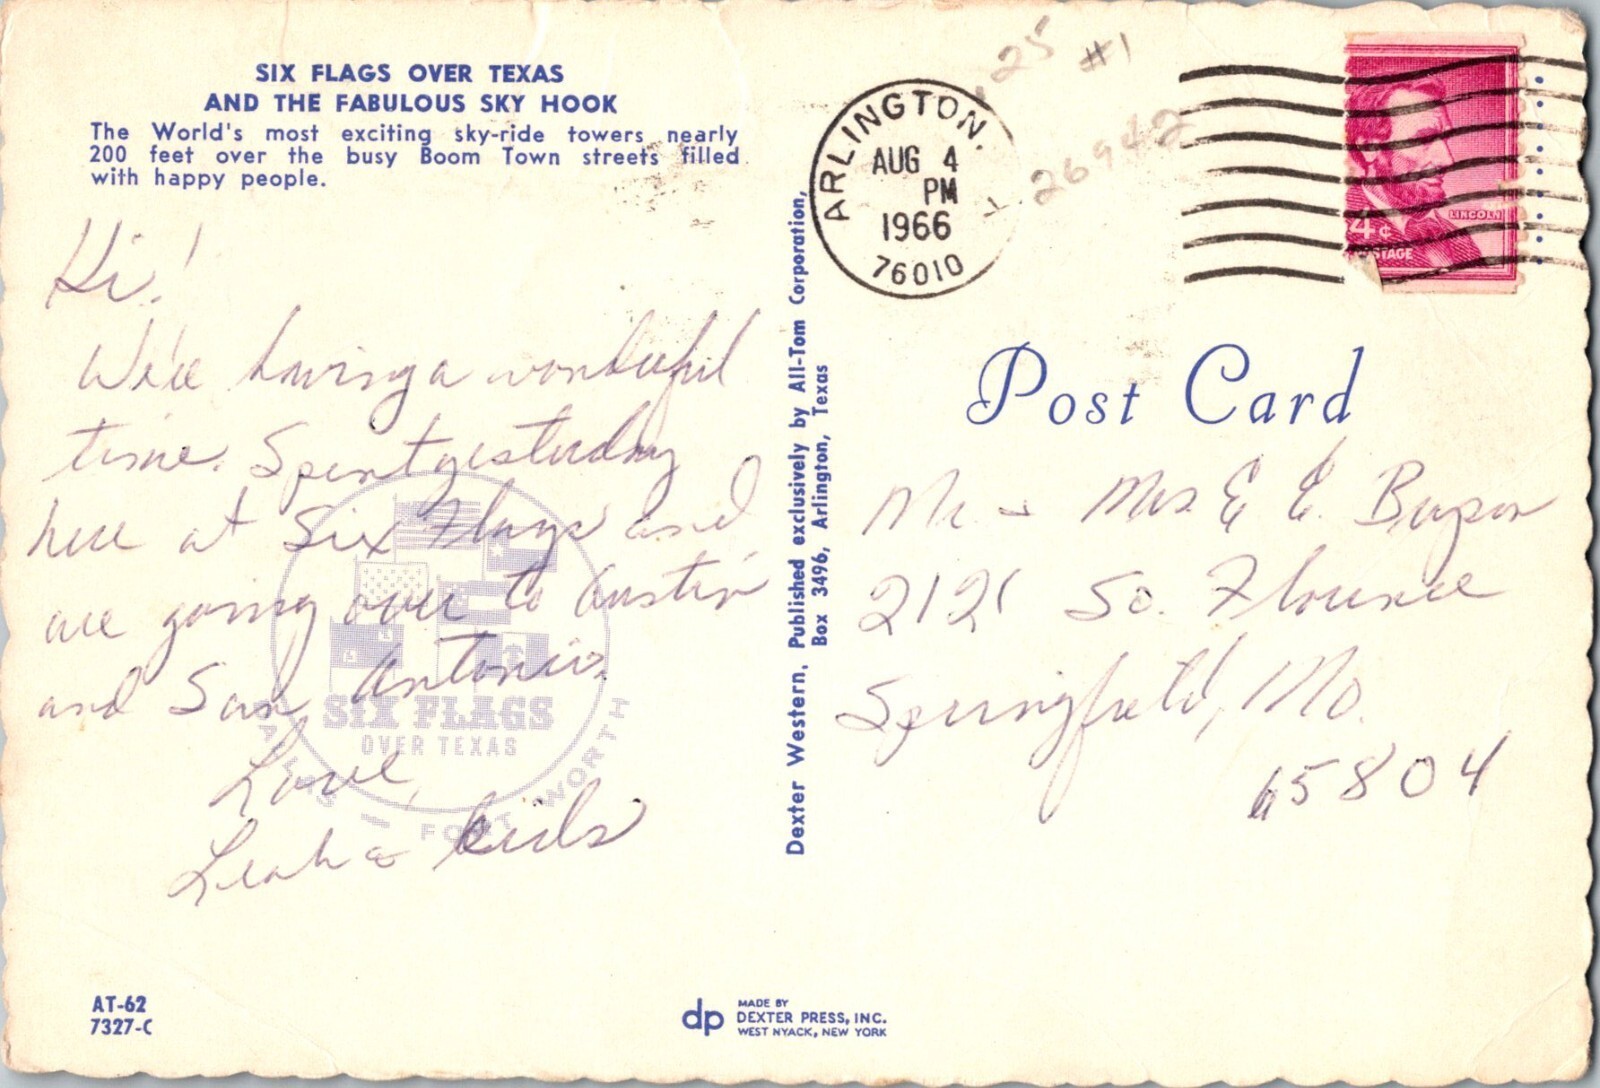 SIX FLAGS OVER TEXAS
AND THE FABULOUS SKY HOOK
The World's most exciting sky-ride towers nearly
200 feet over the busy Boom Town streets filled
with happy people.
Hi!
We're having a wonderful
time. Spent yesterday
here at Six Flags and
are going over to Austin
and San Antonio.
Love,
Leah & kids
SIX FLAGS
OVER TEXAS
DALLAS FORT WORTH
AT-62
7327-C
Dexter Western. Published exclusively by All-Tom Corporation,
Box 3496, Arlington, Texas
dp
MADE BY
DEXTER PRESS, INC.
WEST NYACK, NEW YORK
.25 #1
26942
ARLINGTON.
AUG 4
PM
1966
76010
LINCOLN
4¢
POSTAGE
Post Card
Mr - Mrs E E
2121 So. Florence
Springfield, Mo.
65804